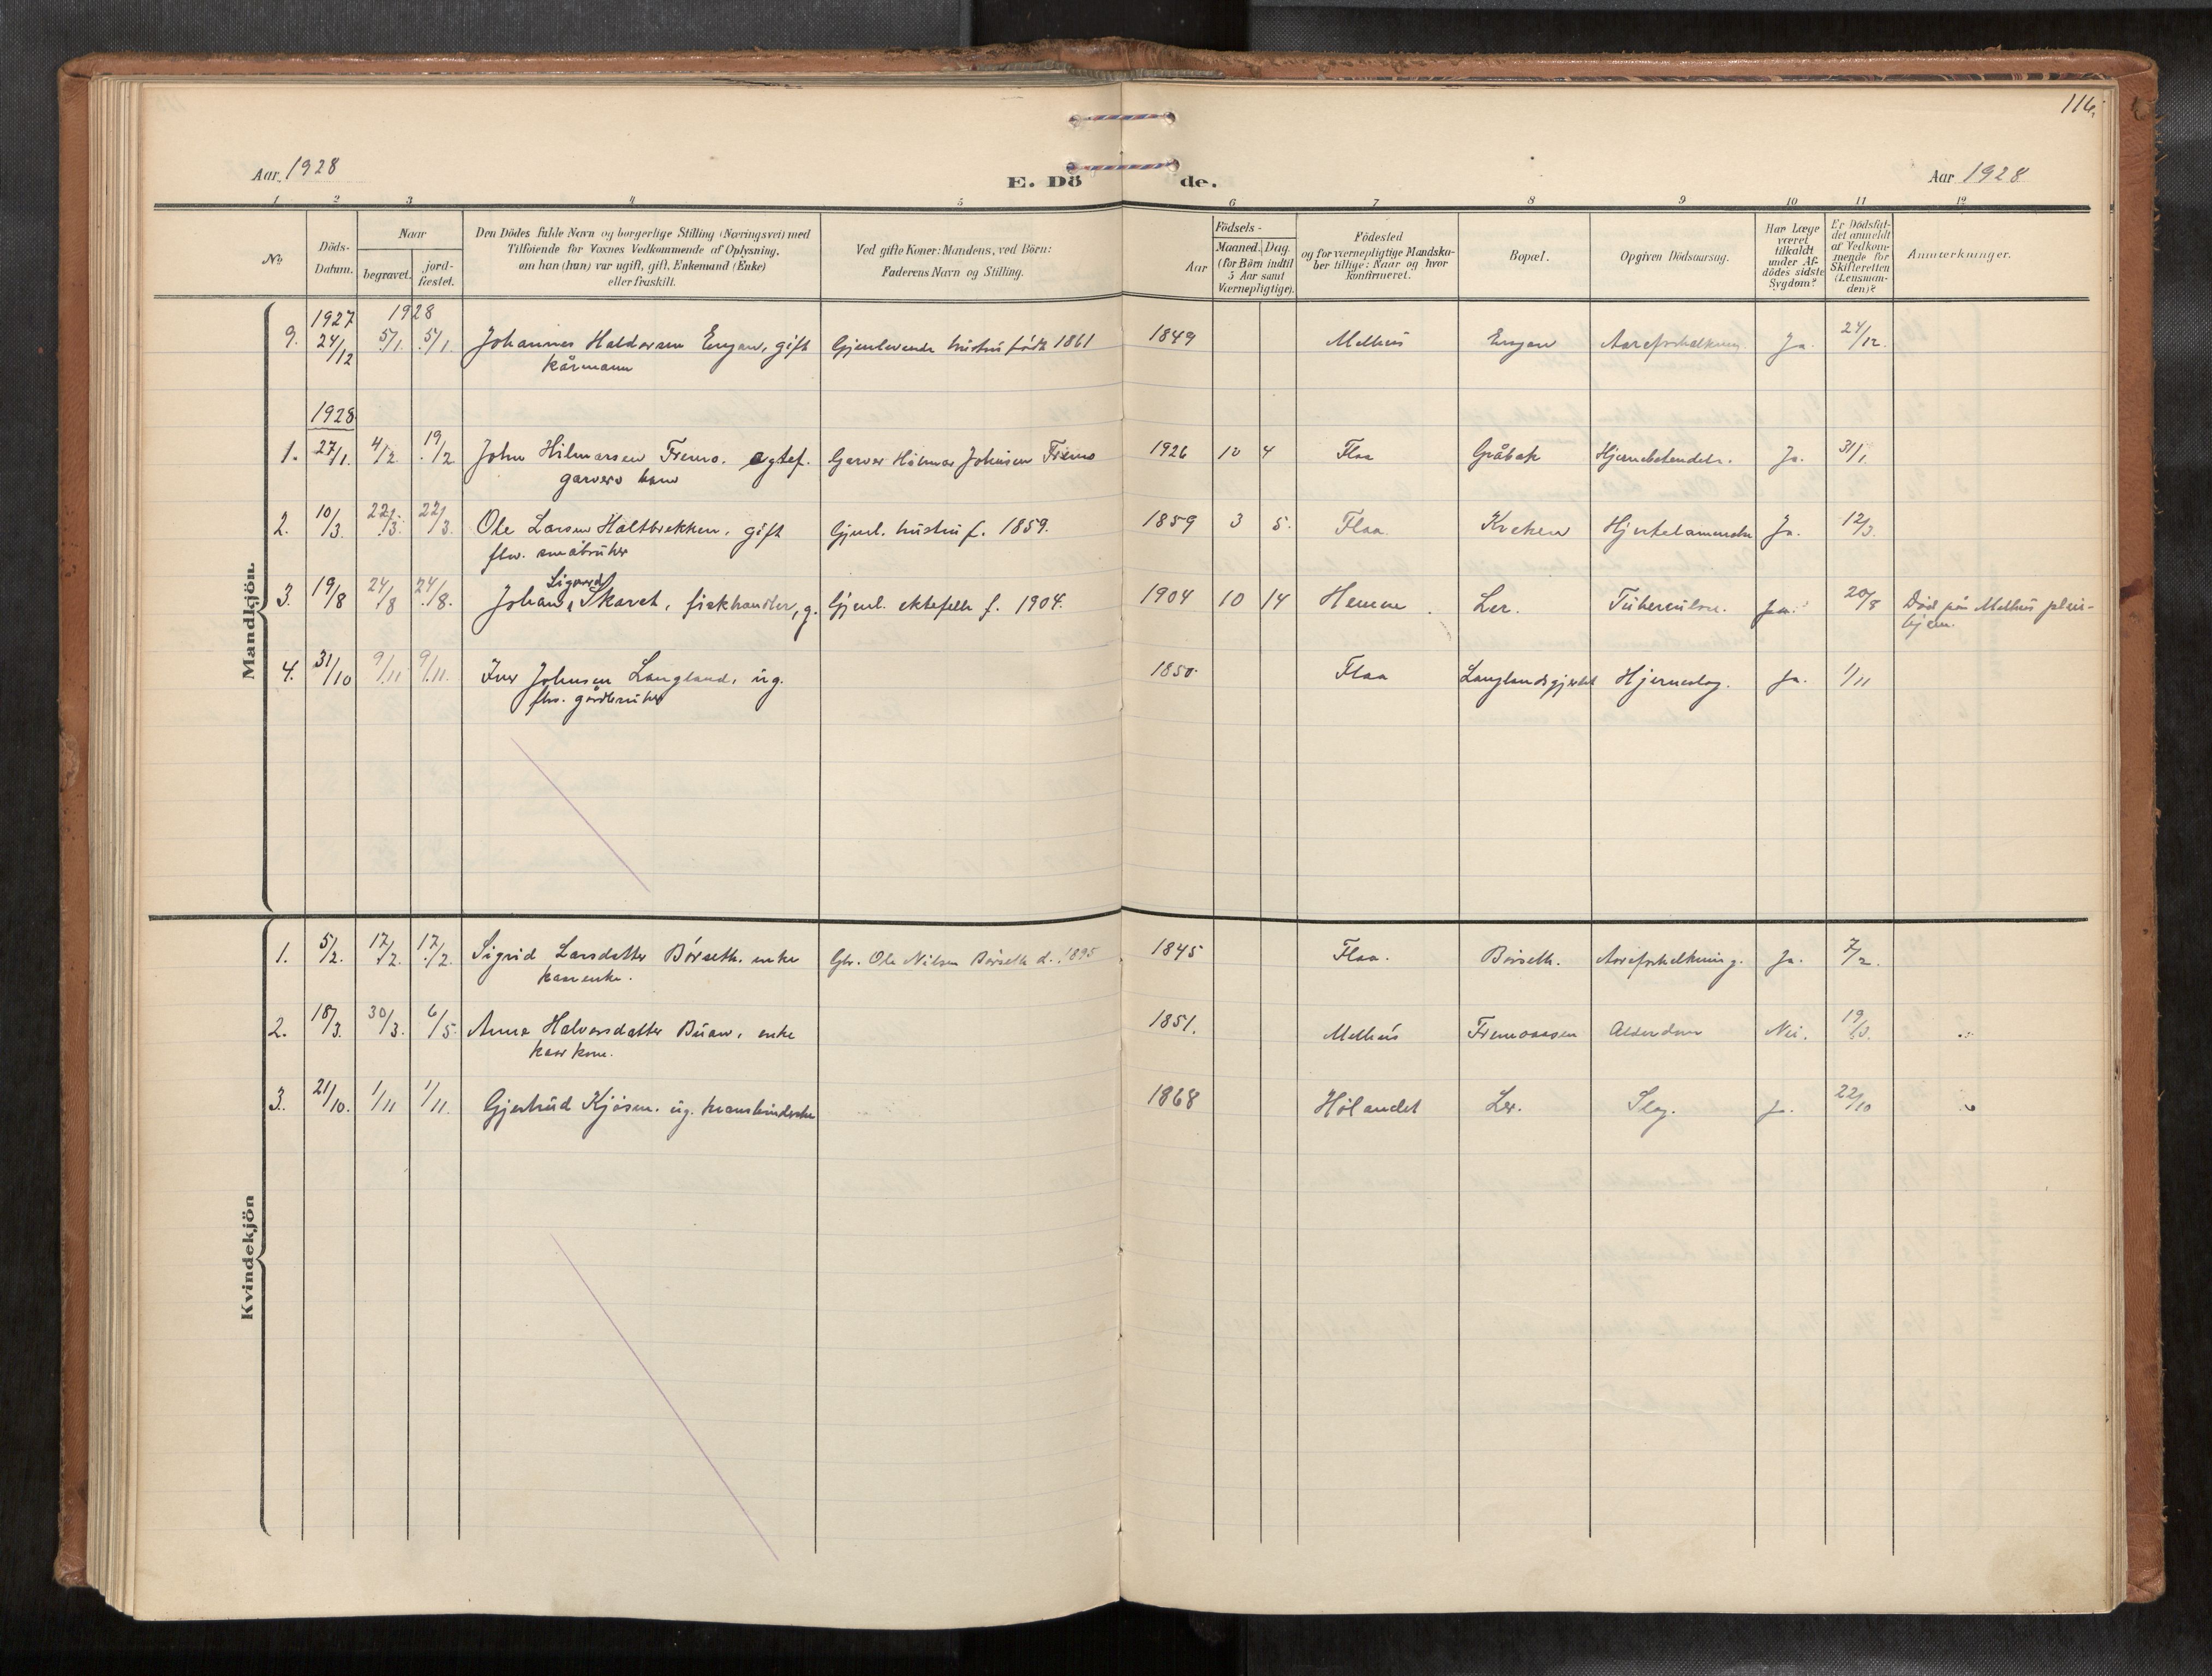 116.
Aar 1928
E. Dö de.
Aar 1928
1 2 3 4 5 6 7 8 9 10 11 12
No
Döds-Datum.
Naar
begravet.
jord-fæstet.
Den Dödes fulde Navn og borgerlige Stilling (Næringsvei) med
Tilföiende for Voxnes Vedkommende af Oplysning,
om han (hun) var ugift, gift, Enkemand (Enke)
eller fraskilt.
Ved gifte Koner: Mandens, ved Börn:
Faderens Navn og Stilling.
Födsels-
Aar
Maaned. Dag.
(for Börn indtil
5 Aar samt
Værnepligtige).
Födested
og for værnepligtige Mandska-
ber tillige: Naar og hvor
konfirmeret.
Bopæl.
Opgiven Dödsaarsag.
Har Læge
været
tilkaldt
under Af-
dödes sidste
Sygdom?
Er Dödsfal-
det anmeldt
af Vedkom-
mende for
Skifteretten
(Lensman-
den)?
Anmærkninger.
Mandkjön.
1927 1928
9. 24/12 5/1. 5/1. Johannes Haldorsen Engan, gift Gjenlevende hustru født 1861 1849 Melhus Engan Ja. 24/12.
kårmann
1928
1. 27/1. 4/2. 19/2 John Hilmarsen Fremo. egtef. Garver Hilmar Johnsen Fremo 1926 10 4 Flaa Gråbak Hjernebetendels. Ja. 31/1.
garvers barn
2. 10/3. 22/3. 22/3. Ole Larsen Haltbrekken, gift Gjenl. hustru f. 1859. 1859 3 5. Flaa. Kveken Hjertelammelse Ja. 12/3.
fhv. småbruker
Sigurd
3. 19/8 24/8 24/8. Johan, Skaret, fiskhandler, g. Gjenl. ektefelle f. 1904. 1904 10 14 Hemne. Ler. Tuberculose. Ja. 20/8 Død på Melhus pleie-
hjem.
4. 31/10 9/11 9/11. Iver Johnsen Langland, ug. 1850. Flaa Langlandsgjerdet Hjerneslag. Ja. 1/11
fhv. gårdbruker
Kvindekjön
1. 5/2. 17/2. 17/2. Sigrid Larsdatter Børseth. enke Gbr. Ole Nilsen Børseth d. 1895 1845 Flaa. Børseth. Aarefork­alkning. Ja. 7/2.
kaarenke.
2. 18/3. 30/3. 6/5. Anna Halvorsdatter Buan, enke 1851. Melhus Fremoaasen Alderdom Nei. 19/3.
kaarkone.
3. 21/10. 1/11 1/11. Gjertrud Kjøsen. ug. kransbinderske 1868 Hølandet Ler. Slag. Ja. 22/10